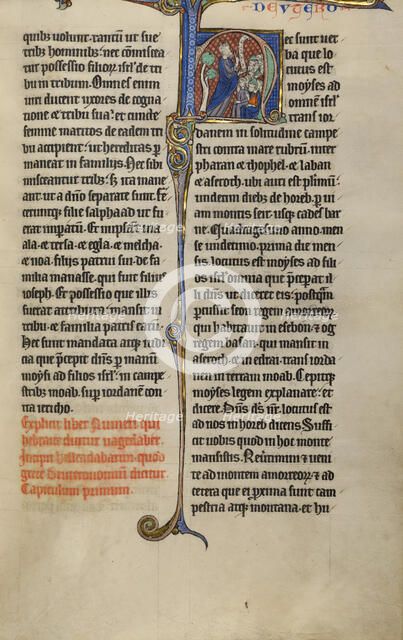 DEVTERO
quibz uoluit. tantum ut sue
tribz hominibz: nec com̄isceat᷑
tur possessio filior̄ isrl̄ de tri
bu in tribum. Om̄es enim
uiri ducent uxores de cogna
tione ⁊ tribu sua: et cuncte
femine maritos de eadem tri
bu accipient: ut hereditas p̄
maneat in familijs. Nec sibi
misceantur tribz: s; ita mane
ant. ut a dn̄o separate sunt. Fe
filie salphaad ut fu
erat impatū. Et
ala ⁊ tersa ⁊ egla ⁊ melcha
⁊ noa. filijs patrui sui. de fa
milia manasse. qui fuit filius
ioseph. Et possessio que illis
fuerat attributa. mansit in
tribu ⁊ familia patris earū.
Hec sunt mandata atqz iudi
cia que p̄cepit dn̄s p̄ manū
moysi ad filios isrl̄. in campe
stribz moab. sup̄ iordanen con
tra iericho.
Explicit liber Numeri qui
hebraice dicitur uagedaber.
Incipit helleadabarim. quod
grece Deuteronomiū dicitur.
Capitulum primum.
hec sunt uer
ba que lo
cutus est
moyses ad
om̄em isrl̄
trans ior
danem in solitudine campe
stri contra mare rubrū. inter
pharan ⁊ thophel ⁊ laban
⁊ aseroth. ubi auri est plimū.
undecim diebz de horeb. p̄ ui
am montis seir. usqz cades bar
ne. Quadragesimo anno. men
se undecimo. prima die men
sis. locutus est moyses ad fili
os isrl̄ omnia que p̄ceperat il
li dn̄s ut diceret eis: postq̄m
p̄cussit seon regem amorreor̄
qui habitauit in esebon: ⁊ og
regem basan. qui mansit in
aseroth. ⁊ in edrai. trans iorda
nem in terram moab. Cepitqz
moyses legem explanare: et
dicere. Dn̄s ds̄ nr̄. locutus est
ad nos in horeb dicens. Suffi
cit uobis quod in hoc monte
mansistis. Reūtimini ⁊ ueni
te ad montem amorreor̄. ⁊ ad
cetera que ei p̄xima sunt cam
pestria atqz montana: et hu
Heritage
Images